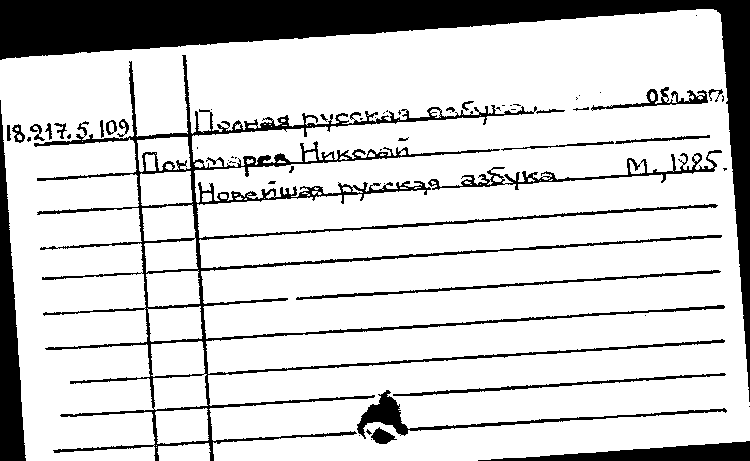 18.217.5.109 Полная русская азбука. Обл.загл.
Пономарев, Николай
Новейшая русская азбука. М., 1885.